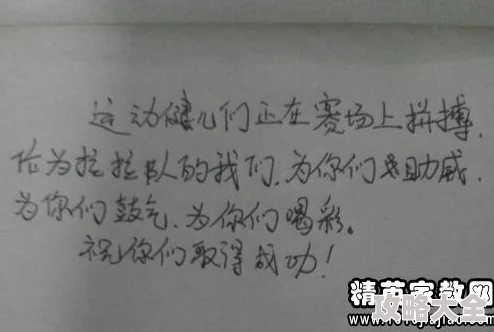 运动健儿们正在赛场上拼搏,
作为拉拉队的我们,为你们助威,
为你们鼓气,为你们喝彩。
祝你们取得成功!
精英家教网
攻略大全